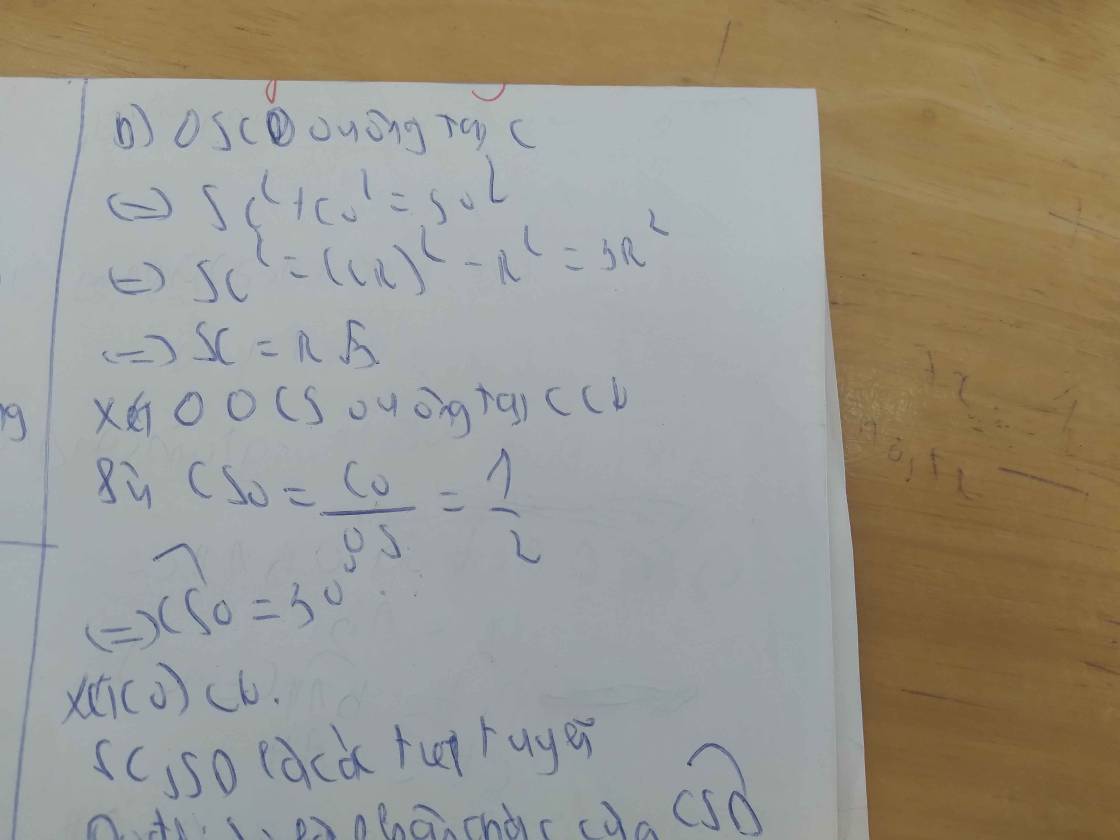 b) ΔSCO vuông tại C
<=> SC² + CO² = SO²
<=> SC² = (2R)² - R² = 3R²
<=> SC = R√3
Xét Δ OCS vuông tại C có
Sin CSO = CO/OS = 1/2
<=> CSO = 30°
Xét (O) có.
SC, SD là các tiếp tuyến
phân giác của CSD
ng